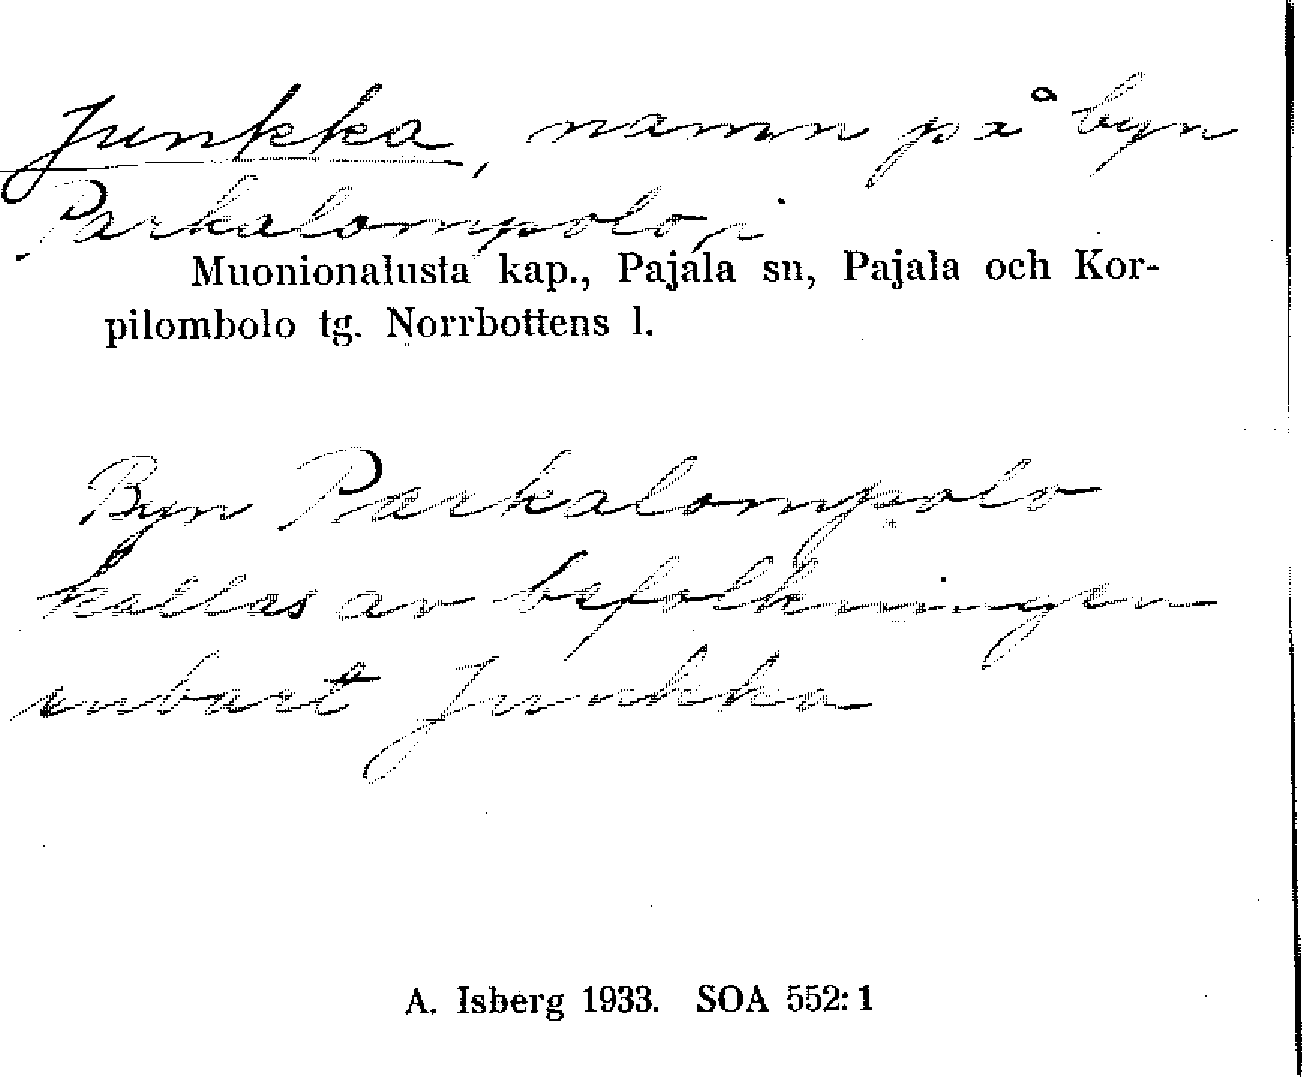 Junkka, namn på byn
Parkalompolo, i
Muonionalusta kap., Pajala sn, Pajala och Kor-
pilombolo tg. Norrbottens l.
Byn Parkalompolo
kallas av befolkningen
enbart Junkka
A. Isberg 1933. SOA 552:1